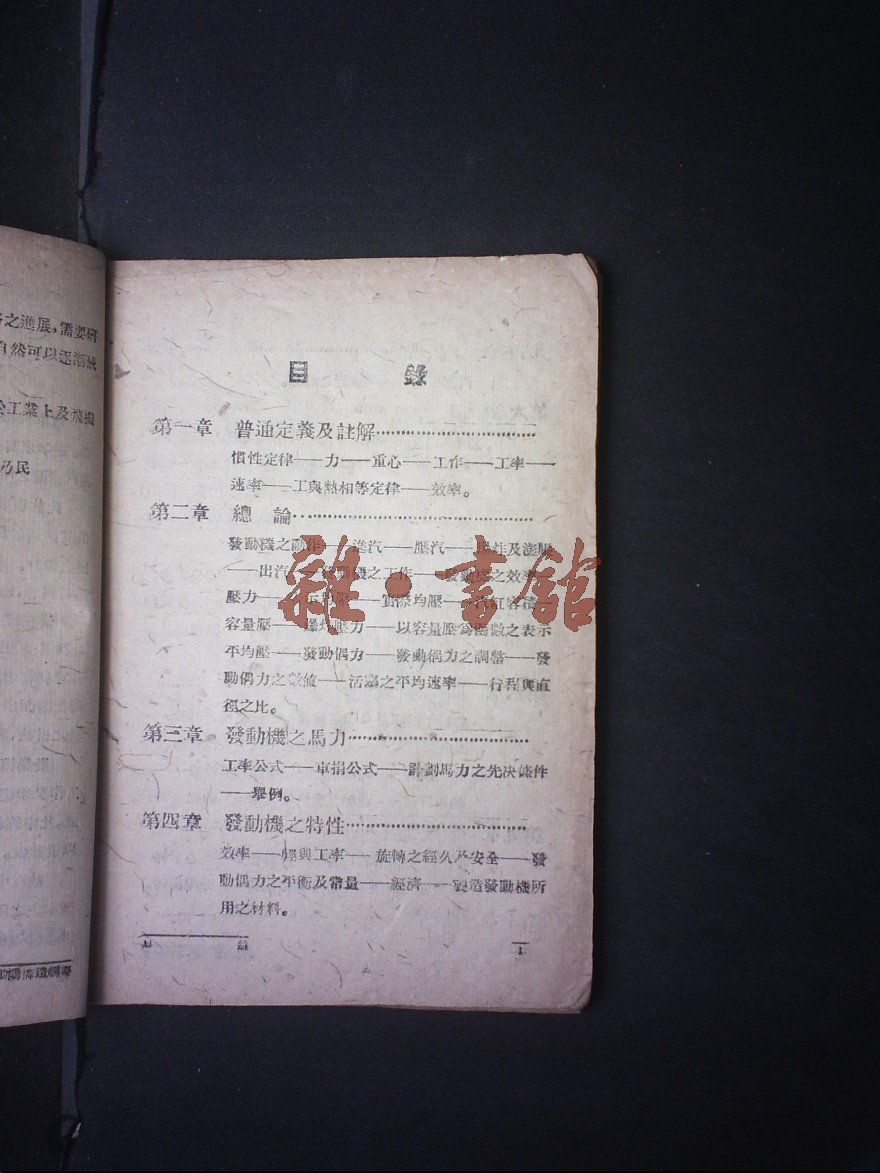 之進展，需要研
自然可以逐漸減
工業上及飛機
乃民
目 錄
第一章 普通定義及註解……………………………
慣性定律——力——重心——工作——工率——
速率——工與熱相等定律——效率。
第二章 總 論……………………………
發動機之動作——進汽——壓汽——爆炸及澎脹
——出汽——發動機之工作——發動機之效率
壓力——均壓——實際均壓——汽缸容積
容量壓——爆炸壓力——以容量壓為函數之表示
平均壓——發動偶力——發動偶力之調整——發
動偶力之數值——活塞之平均速率——行程與直
徑之比。
第三章 發動機之馬力……………………………
工率公式——軍捐公式——計劃馬力之先決條件
——舉例。
第四章 發動機之特性……………………………
效率——輕與工率——旋轉之經久及安全——發
動偶力之平衡及常量——經濟——製造發動機所
用之材料。
目 錄
1
雜·書館